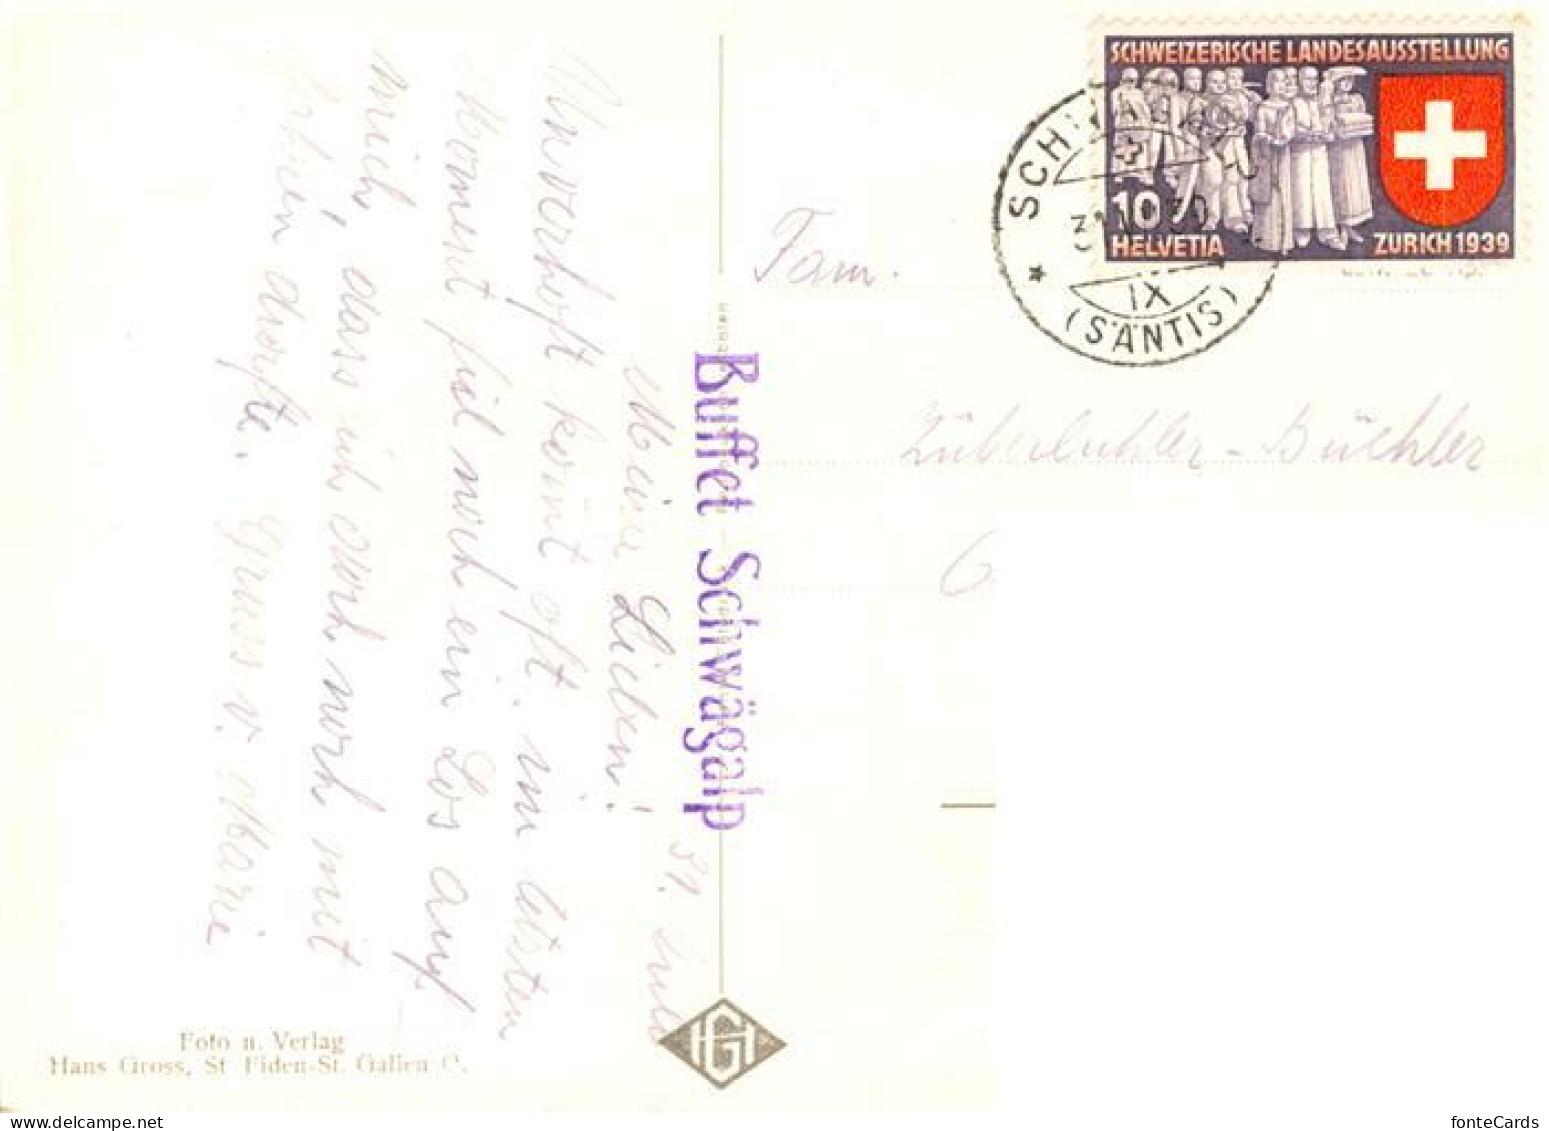 SCHWEIZERISCHE LANDESAUSSTELLUNG
10
HELVETIA
ZURICH 1939
SCHWÄGALP
IX
(SÄNTIS)
Fam.
Büchler
6
Buffet Schwägalp
31. Juli
Meine Lieben!
Unverhofft kommt oft. im letsten
Moment fiel noch ein Los auf
mich, dass ich auch noch mit
durfte. Gruss v. Marie
Foto u. Verlag
Hans Gross, St Fiden-St. Gallen O.
HG
fonteCards